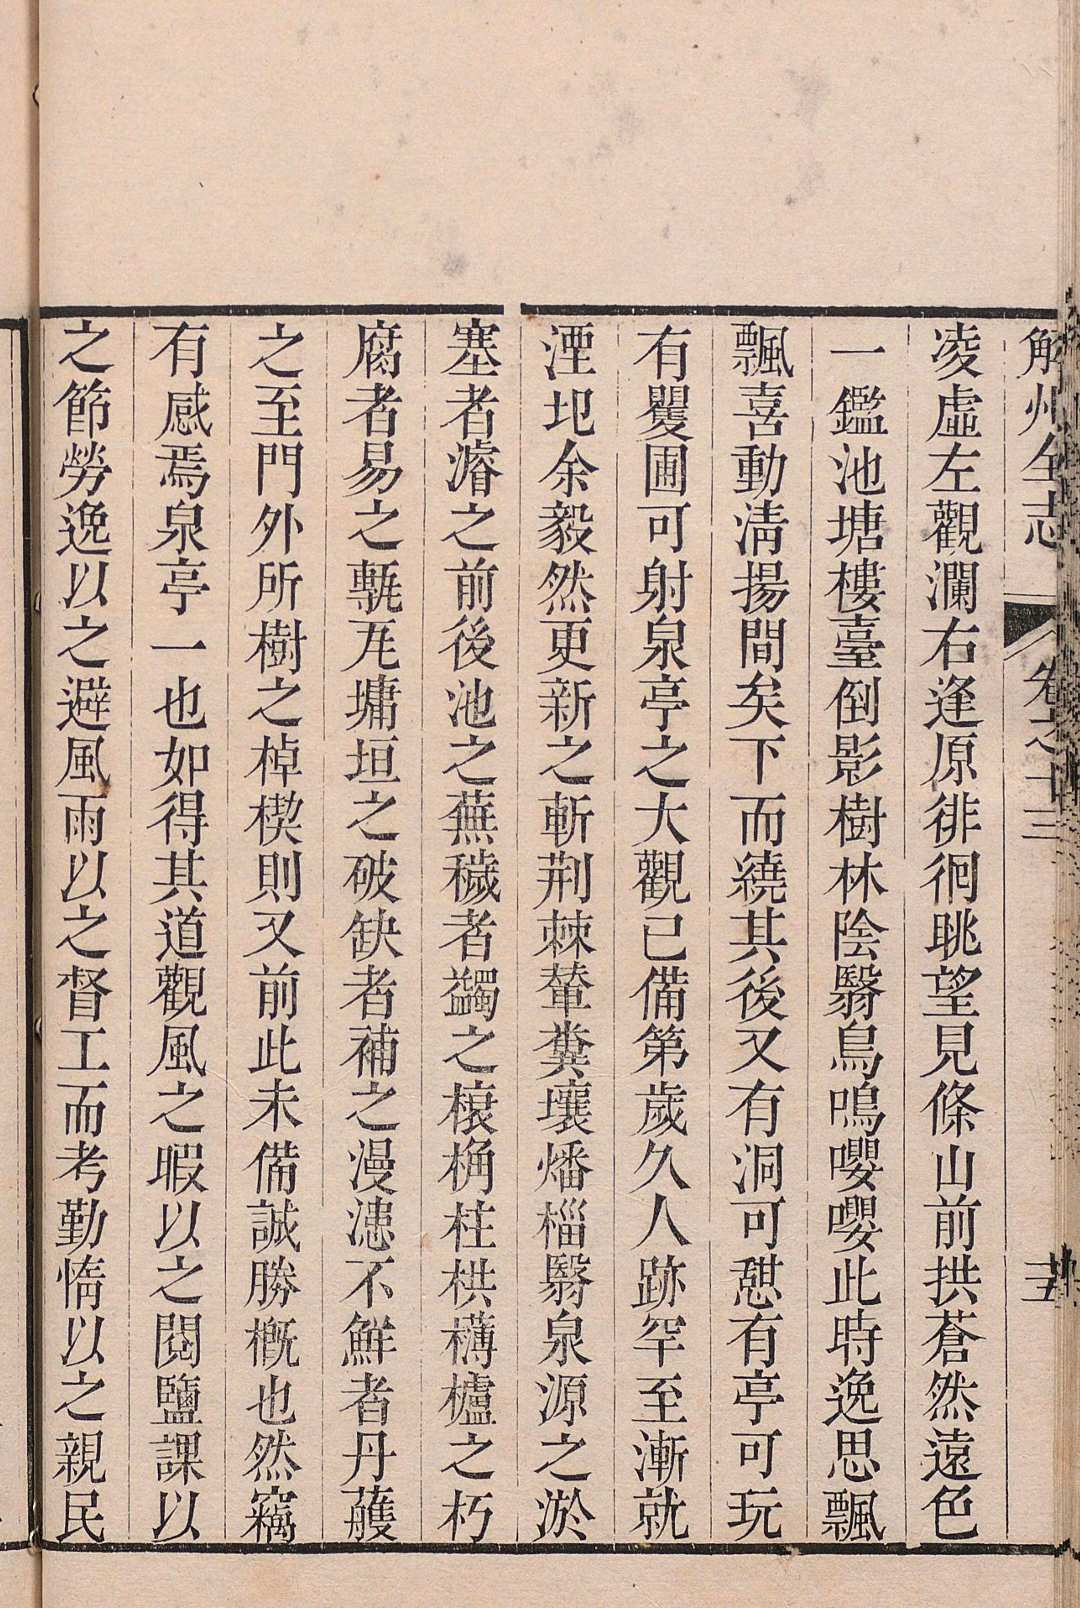 解州全志 卷之十三
凌虛左觀瀾右逢原徘徊眺望見條山前拱蒼然遠色
一鑑池塘樓臺倒影樹林陰翳鳥鳴嚶嚶此時逸思飄
飄喜動淸揚間矣下而繞其後又有洞可憇有亭可玩
有矍圃可射泉亭之大觀已備第歲久人跡罕至漸就
湮圯余毅然更新之斬荆棘輦糞壤燔榴翳泉源之淤
塞者濬之前後池之蕪穢者蠲之榱桷柱栱欂櫨之朽
腐者易之甎瓦墉垣之破缺者補之漫漶不鮮者丹雘
之至門外所樹之棹楔則又前此未備誠勝槪也然竊
有感焉泉亭一也如得其道觀風之暇以之閱鹽課以
之節勞逸以之避風雨以之督工而考勤惰以之親民